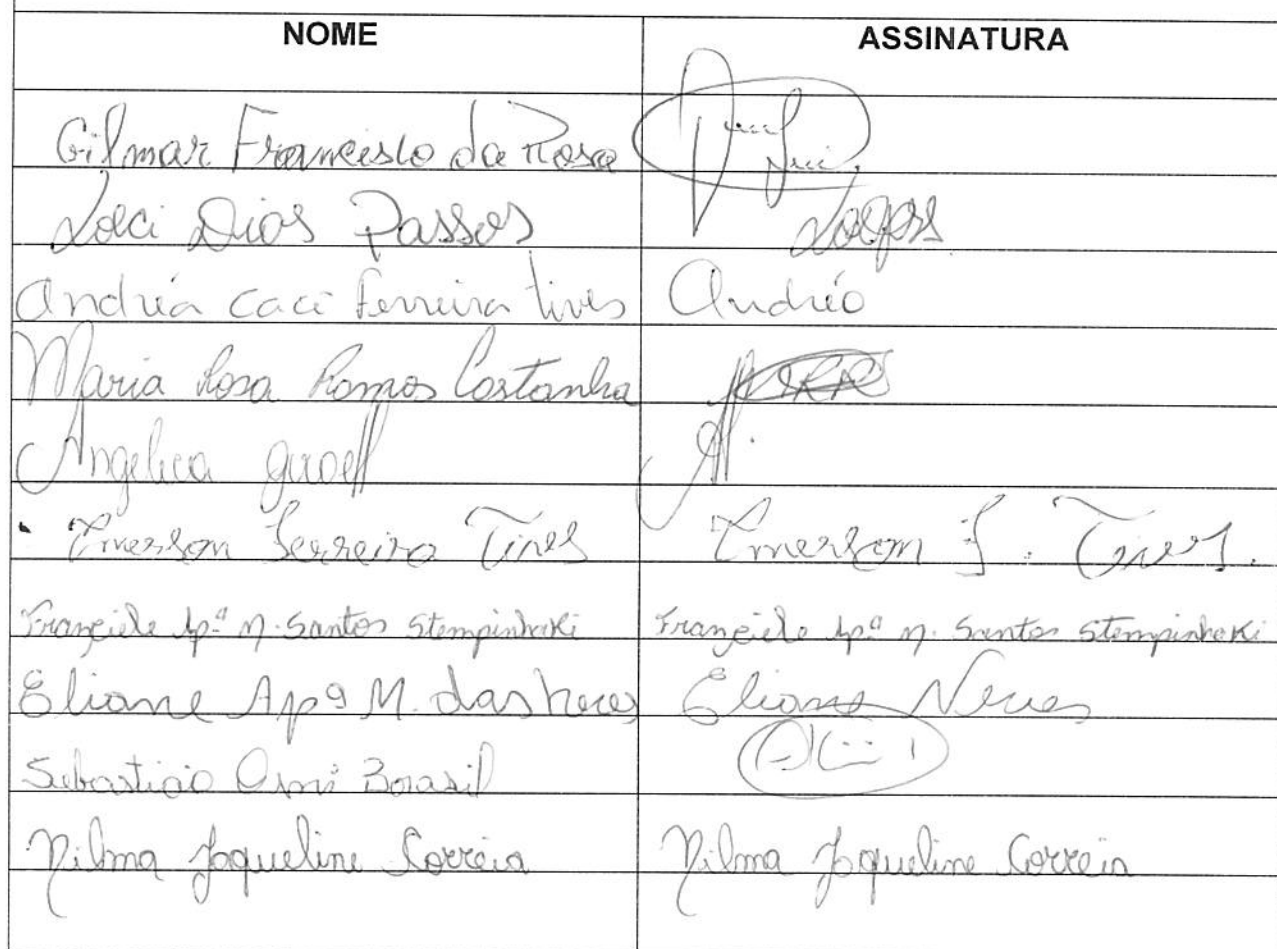 NOME ASSINATURA
Gilmar Francisco da Rosa
Loeci Dias Passos
Andréia Caci Ferreira Tives Andréia
Maria Rosa Ramos Castanha
Angelica
Emerson Ferreira Tives Emerson F. Tives.
Franciele Apª M. Santos Stempinhaki Franciele Apª M. Santos Stempinhaki
Eliane Apª M. das Neves Eliane Neves
Sebastião Osni Brasil
Nilma Jaqueline Correia Nilma Jaqueline Correia